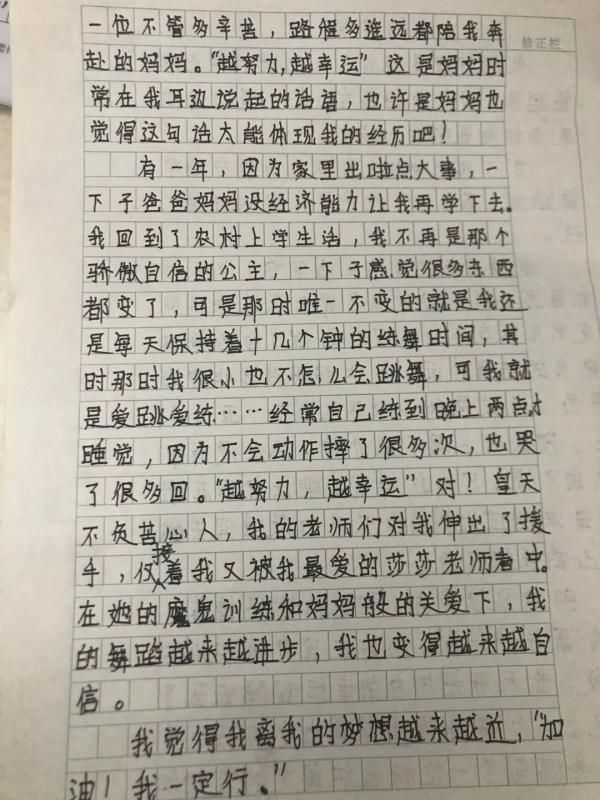 一位不管多辛苦，路程多遥远都陪我奔
修正栏
赴的妈妈。“越努力，越幸运”这是妈妈时
常在我耳边说起的话语，也许是妈妈也
觉得这句话太能体现我的经历吧！
有一年，因为家里出啦点大事，一
下子爸爸妈妈没经济能力让我再学下去。
我回到了农村上学生活，我不再是那个
骄傲自信的公主，一下子感觉很多东西
都变了，可是那时唯一不变的就是我还
是每天保持着十几个钟的练舞时间，其
时那时我很小也不怎么会跳舞，可我就
是爱跳爱练……经常自己练到晚上两点才
睡觉，因为不会动作摔了很多次，也哭
了很多回。“越努力，越幸运”对！皇天
不负苦心人，我的老师们对我伸出了援
手，仅接着我又被我最爱的莎莎老师看中。
在她的魔鬼训练和妈妈般的关爱下，我
的舞蹈越来越进步，我也变得越来越自
信。
我觉得我离我的梦想越来越近，“加
油！我一定行。”